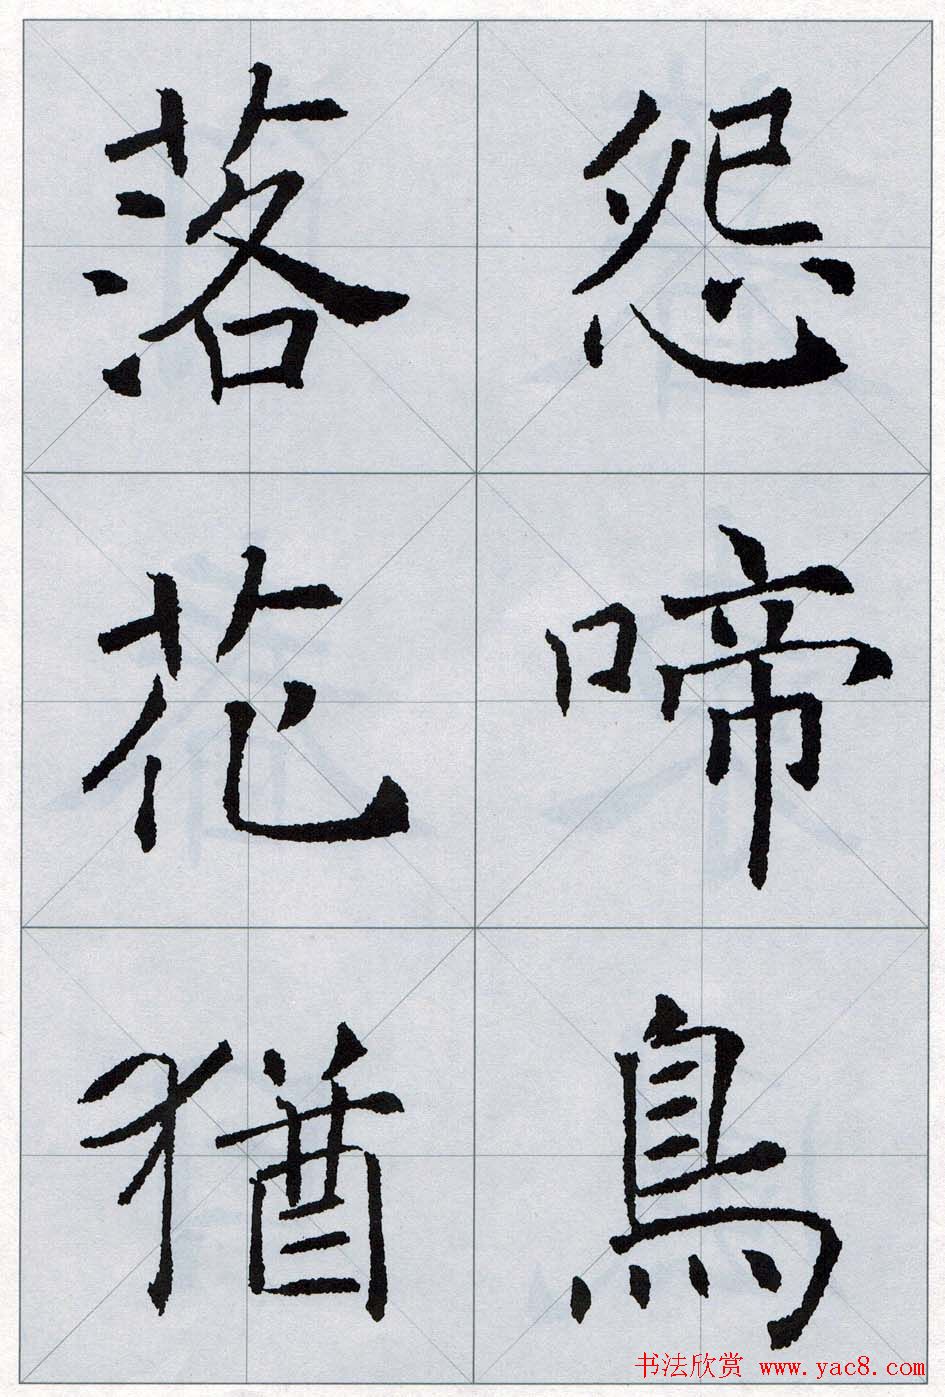 怨啼鳥
落花猶
书法欣赏 www.yac8.com